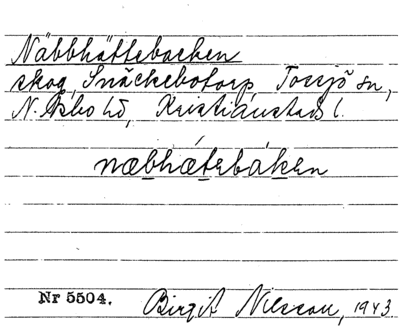 Näbbhättebacken
skog, Snäckebotorp, Tossjö sn,
N. Åsbo hd, Kristianstads l.
næbhǽtebáken
Nr 5504. Birgit Nilsson, 1943